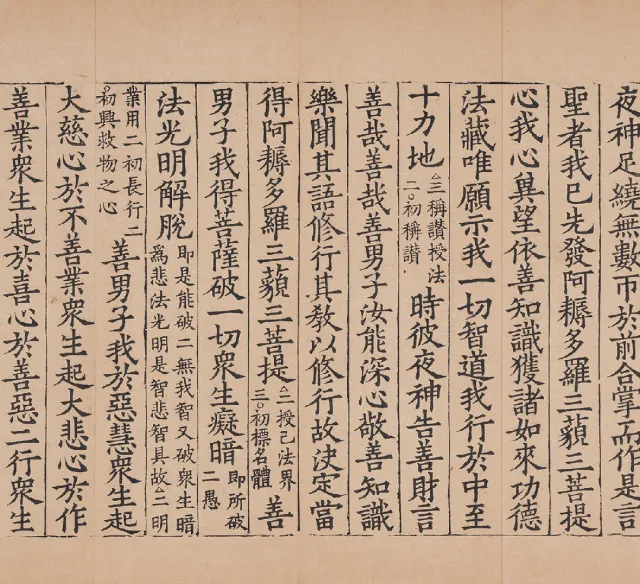 夜神足繞無數帀於前合掌而作是言
聖者我已先發阿耨多羅三藐三菩提
心我心兾望依善知識獲諸如來功德
法藏唯願示我一切智道我行於中至
十力地△三稱讃授法二○初稱讃時彼夜神告善財言
善哉善哉善男子汝能深心敬善知識
樂聞其語修行其教以修行故決定當
得阿耨多羅三藐三菩提△二授己法界三○初標名體善
男子我得菩薩破一切衆生癡暗即所破二愚
法光明解脫即是能破二無我智又破衆生暗爲悲法光明是智悲智具故△二明
業用二初長行二○初興救物之心善男子我於惡慧衆生起
大慈心於不善業衆生起大悲心於作
善業衆生起於喜心於善惡二行衆生